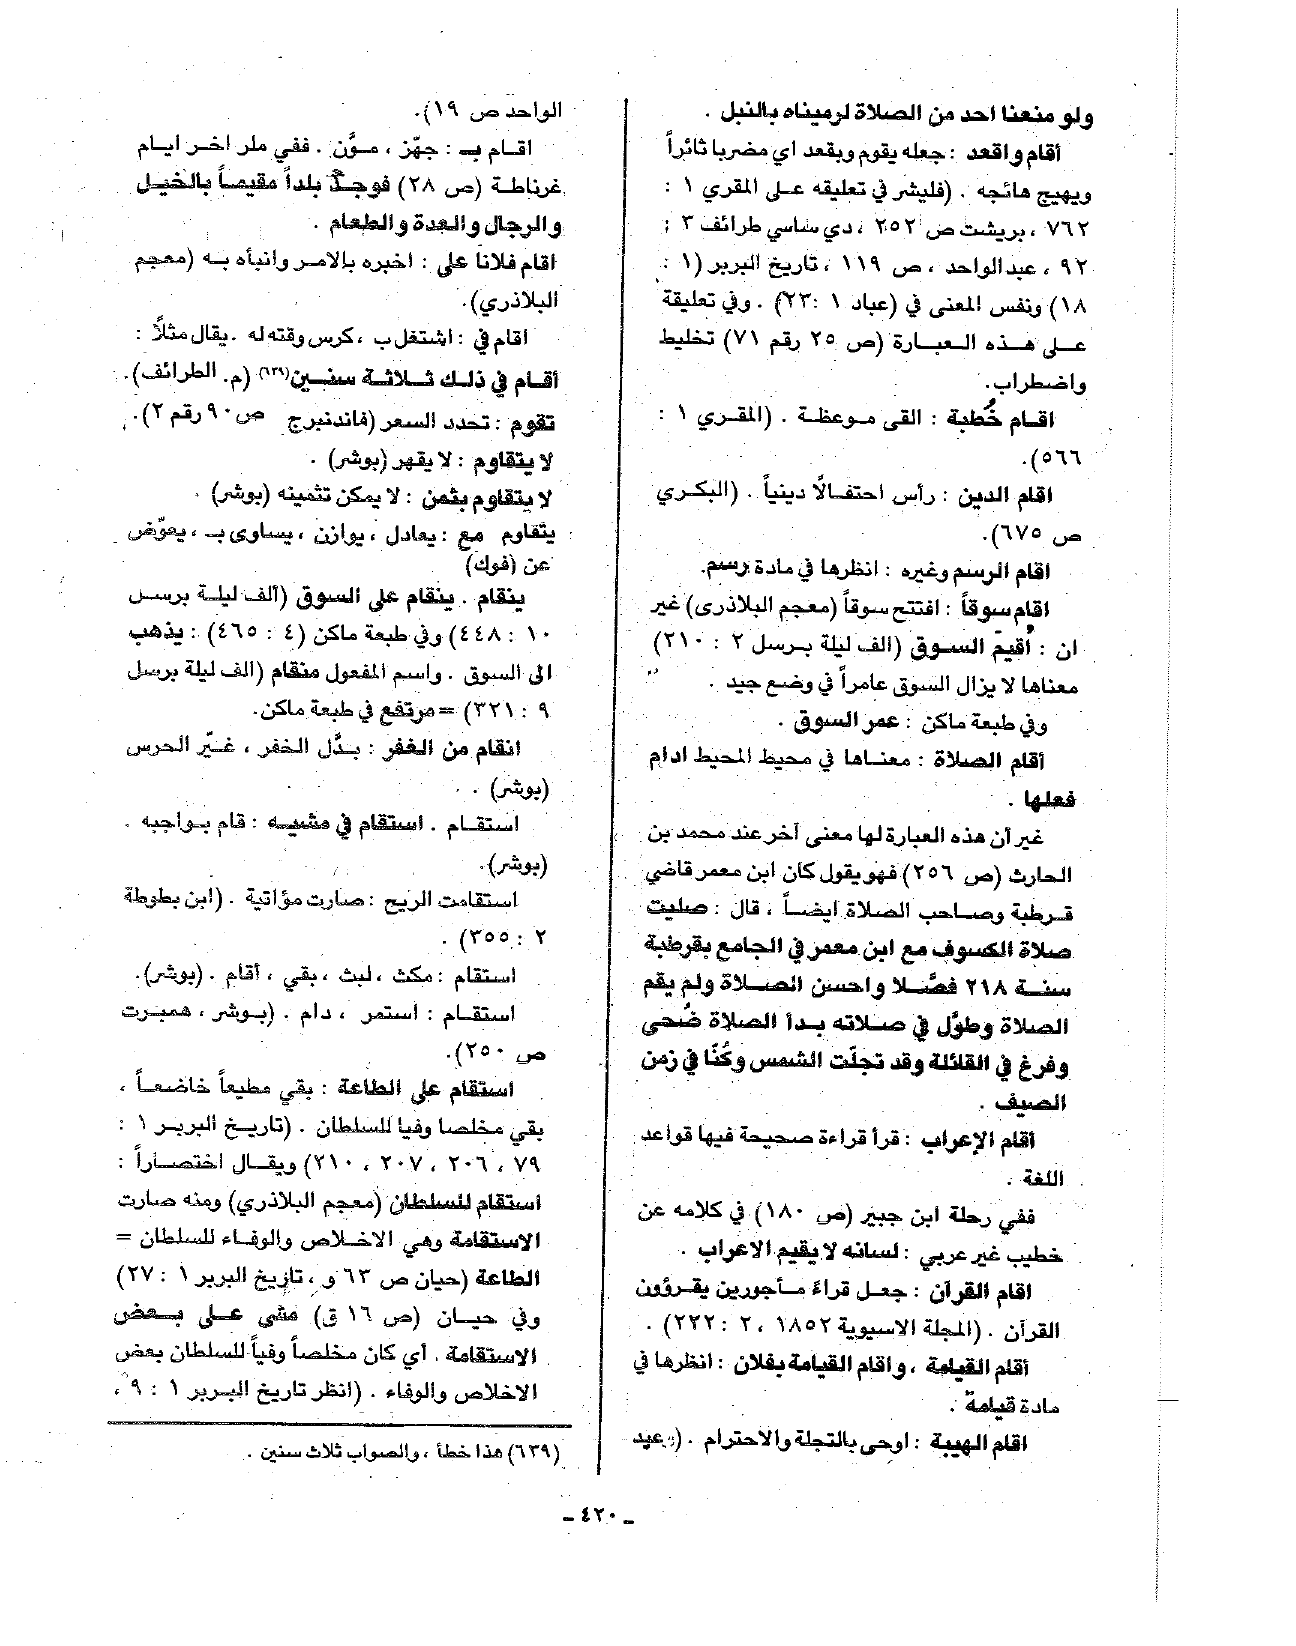 ولو منعنا احد من الصلاة لرميناه بالنبل .
أقام واقعد : جعله يقوم ويقعد اي مضربا ثائراً
ويهيج هائجه . (فليشر في تعليقه على المقري ١ :
٧٦٢ ، بريشت ص ٢٥٢ ، دي ساسي طرائف ٣ :
٩٢ ، عبد الواحد ، ص ١١٩ ، تاريخ البربر (١ :
١٨) ونفس المعنى في (عباد ١ : ٢٣) . وفي تعليقة
على هذه العبارة (ص ٢٥ رقم ٧١) تخليط
واضطراب.
اقام خُطبة : القى موعظة . (المقري ١ :
٥٦٦).
اقام الدين : رأس احتفالًا دينياً . (البكري
ص ٦٧٥).
اقام الرسم وغيره : انظرها في مادة رسم.
اقام سوقاً : افتتح سوقاً (معجم البلاذري) غير
ان : أُقيمَ السوق (الف ليلة برسل ٢ : ٢١٠)
معناها لا يزال السوق عامراً في وضع جيد .
وفي طبعة ماكن : عمر السوق .
أقام الصلاة : معناها في محيط المحيط ادام
فعلها .
غير أن هذه العبارة لها معنى آخر عند محمد بن
الحارث (ص ٢٥٦) فهو يقول كان ابن معمر قاضي
قرطبة وصاحب الصلاة ايضاً ، قال : صليت
صلاة الكسوف مع ابن معمر في الجامع بقرطبة
سنة ٢١٨ فصَّلا واحسن الصلاة ولم يقم
الصلاة وطوَّل في صلاته بدأ الصلاة ضُحى
وفرغ في القائلة وقد تجلّت الشمس وكُنّا في زمن
الصيف .
أقام الإعراب : قرأ قراءة صحيحة فيها قواعد
اللغة .
ففي رحلة ابن جبير (ص ١٨٠) في كلامه عن
خطيب غير عربي : لسانه لا يقيم الاعراب .
اقام القرآن : جعل قراءً مأجورين يقرؤون
القرآن . (المجلة الاسيوية ١٨٥٢ ، ٢ : ٢٢٢) .
أقام القيامة ، واقام القيامة بفلان : انظرها في
مادة قيامة .
اقام الهيبة : اوحى بالتجلة والاحترام . (عبد
الواحد ص ١٩).
اقام بـ : جهّز ، موَّن . ففي ملر اخر ايام
غرناطة (ص ٢٨) فوجدَّ بلداً مقيماً بالخيل
والرجال والعدة والطعام .
اقام فلانا على : اخبره بالامر وانبأه به (معجم
البلاذري).
اقام في : اشتغل ب ، كرس وقته له . يقال مثلاً :
أقام في ذلك ثلاثة سنين(٦٣٩) (م. الطرائف).
تقوم : تحدد السعر (فاندنبرج ص ٩٠ رقم ٢).
لا يتقاوم : لا يقهر (بوشر) .
لا يتقاوم بثمن : لا يمكن تثمينه (بوشر) .
يتقاوم مع : يعادل ، يوازن ، يساوى بـ ، يعوّض
عن (فوك)
ينقام . ينقام على السوق (ألف ليلة برسل
١٠ : ٤٤٨) وفي طبعة ماكن (٤ : ٤٦٥) : يذهب
الى السوق . واسم المفعول منقام (الف ليلة برسل
٩ : ٣٢١) = مرتفع في طبعة ماكن.
انقام من الغفر : بدَّل الخفر ، غيّر الحرس
(بوشر) .
استقام . استقام في مشيه : قام بواجبه .
(بوشر).
استقامت الريح : صارت مؤاتية . (ابن بطوطة
٢ : ٣٥٥) .
استقام : مكث ، لبث ، بقي ، أقام . (بوشر).
استقام : أستمر ، دام . (بوشر ، همبرت
ص ٢٥٠).
استقام على الطاعة : بقي مطيعاً خاضعاً ،
بقي مخلصا وفيا للسلطان . (تاريخ البربر ١ :
٧٩ ، ٢٠٦ ، ٢٠٧ ، ٢١٠) ويقال اختصاراً :
استقام للسلطان (معجم البلاذري) ومنه صارت
الاستقامة وهي الاخلاص والوفاء للسلطان =
الطاعة (حيان ص ٦٣ و ، تاريخ البربر ١ : ٢٧)
وفي حيان (ص ١٦ ق) مشى على بعض
الاستقامة . أي كان مخلصاً وفياً للسلطان بعض
الاخلاص والوفاء . (انظر تاريخ البربر ١ : ٩ ،
(٦٣٩) هذا خطأ ، والصواب ثلاث سنين .
ـ ٤٢٠ ـ